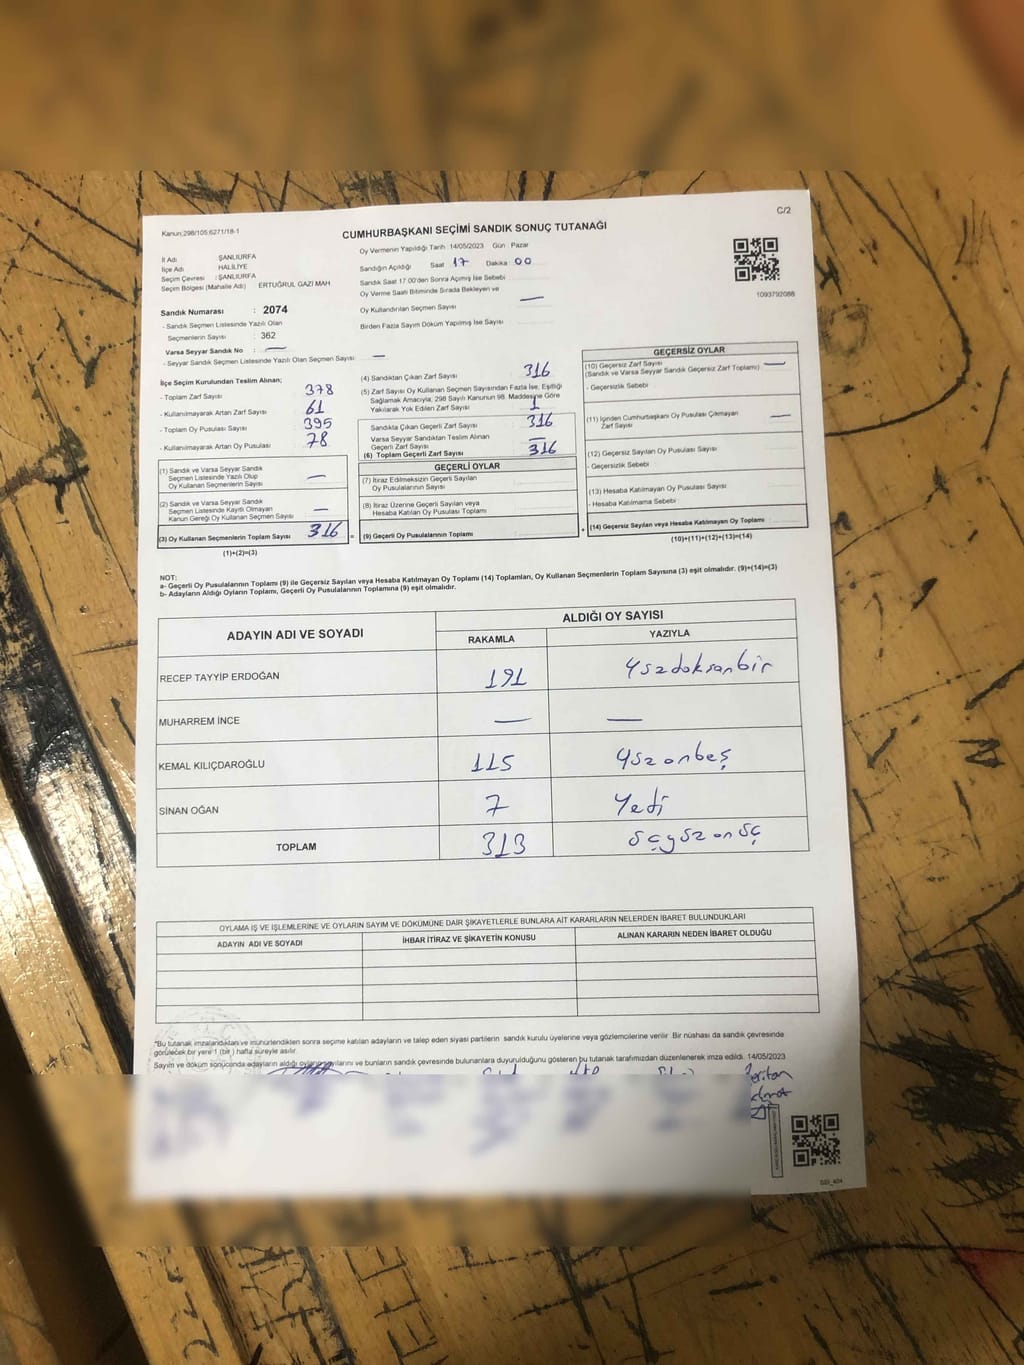 C/2
Kanun:298/105;6271/18-1
CUMHURBAŞKANI SEÇİMİ SANDIK SONUÇ TUTANAĞI
İl Adı : ŞANLIURFA
İlçe Adı : HALİLİYE
Seçim Çevresi : ŞANLIURFA
Seçim Bölgesi (Mahalle Adı) ERTUĞRUL GAZİ MAH.
Oy Vermenin Yapıldığı Tarih : 14/05/2023 Gün Pazar
Sandığın Açıldığı Saat 17 Dakika 00
Sandık Saat 17:00'den Sonra Açılmış İse Sebebi
Oy Verme Saati Bitiminde Sırada Bekleyen ve
Oy Kullandırılan Seçmen Sayısı —
Birden Fazla Sayım Döküm Yapılmış İse Sayısı :
1093792088
Sandık Numarası : 2074
- Sandık Seçmen Listesinde Yazılı Olan
Seçmenlerin Sayısı : 362
Varsa Seyyar Sandık No : —
- Seyyar Sandık Seçmen Listesinde Yazılı Olan Seçmen Sayısı : —
İlçe Seçim Kurulundan Teslim Alınan;
- Toplam Zarf Sayısı 378
- Kullanılmayarak Artan Zarf Sayısı 61
- Toplam Oy Pusulası Sayısı 395
- Kullanılmayarak Artan Oy Pusulası 78
(1) Sandık ve Varsa Seyyar Sandık
Seçmen Listesinde Yazılı Olup
Oy Kullanan Seçmenlerin Sayısı —
(2) Sandık ve Varsa Seyyar Sandık
Seçmen Listesinde Kayıtlı Olmayan
Kanun Gereği Oy Kullanan Seçmen Sayısı —
(3) Oy Kullanan Seçmenlerin Toplam Sayısı 316 =
(1)+(2)=(3)
(4) Sandıktan Çıkan Zarf Sayısı 316
(5) Zarf Sayısı Oy Kullanan Seçmen Sayısından Fazla İse, Eşitliği
Sağlamak Amacıyla, 298 Sayılı Kanunun 98. Maddesine Göre
Yakılarak Yok Edilen Zarf Sayısı 1
Sandıkta Çıkan Geçerli Zarf Sayısı 316
Varsa Seyyar Sandıktan Teslim Alınan
Geçerli Zarf Sayısı —
(6) Toplam Geçerli Zarf Sayısı 316
GEÇERLİ OYLAR
(7) İtiraz Edilmeksizin Geçerli Sayılan
Oy Pusulasının Sayısı
(8) İtiraz Üzerine Geçerli Sayılan veya
Hesaba Katılan Oy Pusulası Toplamı
(9) Geçerli Oy Pusulalarının Toplamı +
GEÇERSİZ OYLAR
(10) Geçersiz Zarf Sayısı —
(Sandık ve Varsa Seyyar Sandık Geçersiz Zarf Toplamı)
- Geçersizlik Sebebi
(11) İçinden Cumhurbaşkanı Oy Pusulası Çıkmayan
Zarf Sayısı —
(12) Geçersiz Sayılan Oy Pusulası Sayısı
- Geçersizlik Sebebi :
(13) Hesaba Katılmayan Oy Pusulası Sayısı
- Hesaba Katılmama Sebebi
(14) Geçersiz Sayılan veya Hesaba Katılmayan Oy Toplamı
(10)+(11)+(12)+(13)=(14)
NOT:
a- Geçerli Oy Pusulalarının Toplamı (9) ile Geçersiz Sayılan veya Hesaba Katılmayan Oy Toplamı (14) Toplamları, Oy Kullanan Seçmenlerin Toplam Sayısına (3) eşit olmalıdır. (9)+(14)=(3)
b- Adayların Aldığı Oyların Toplamı, Geçerli Oy Pusulalarının Toplamına (9) eşit olmalıdır.
ADAYIN ADI VE SOYADI ALDIĞI OY SAYISI
RAKAMLA YAZIYLA
RECEP TAYYİP ERDOĞAN 191 Yüzdoksanbir
MUHARREM İNCE — —
KEMAL KILIÇDAROĞLU 115 Yüzonbeş
SİNAN OĞAN 7 Yedi
TOPLAM 313 üçyüzonüç
OYLAMA İŞ VE İŞLEMLERİNE VE OYLARIN SAYIM VE DÖKÜMÜNE DAİR ŞİKAYETLERLE BUNLARA AİT KARARLARIN NELERDEN İBARET BULUNDUKLARI
ADAYIN ADI VE SOYADI İHBAR İTİRAZ VE ŞİKAYETİN KONUSU ALINAN KARARIN NEDEN İBARET OLDUĞU
"Bu tutanak imzalandıktan ve mühürlendikten sonra seçime katılan adayların ve talep eden siyasi partilerin sandık kurulu üyelerine veya gözlemcilerine verilir. Bir nüshası da sandık çevresinde
görülecek bir yere 1 (bir) hafta süreyle asılır.
Sayım ve döküm sonucunda adayların aldığı oyların sayılarını ve bunların sandık çevresinde bulunanlara duyurulduğunu gösteren bu tutanak tarafımızdan düzenlenerek imza edildi. 14/05/2023